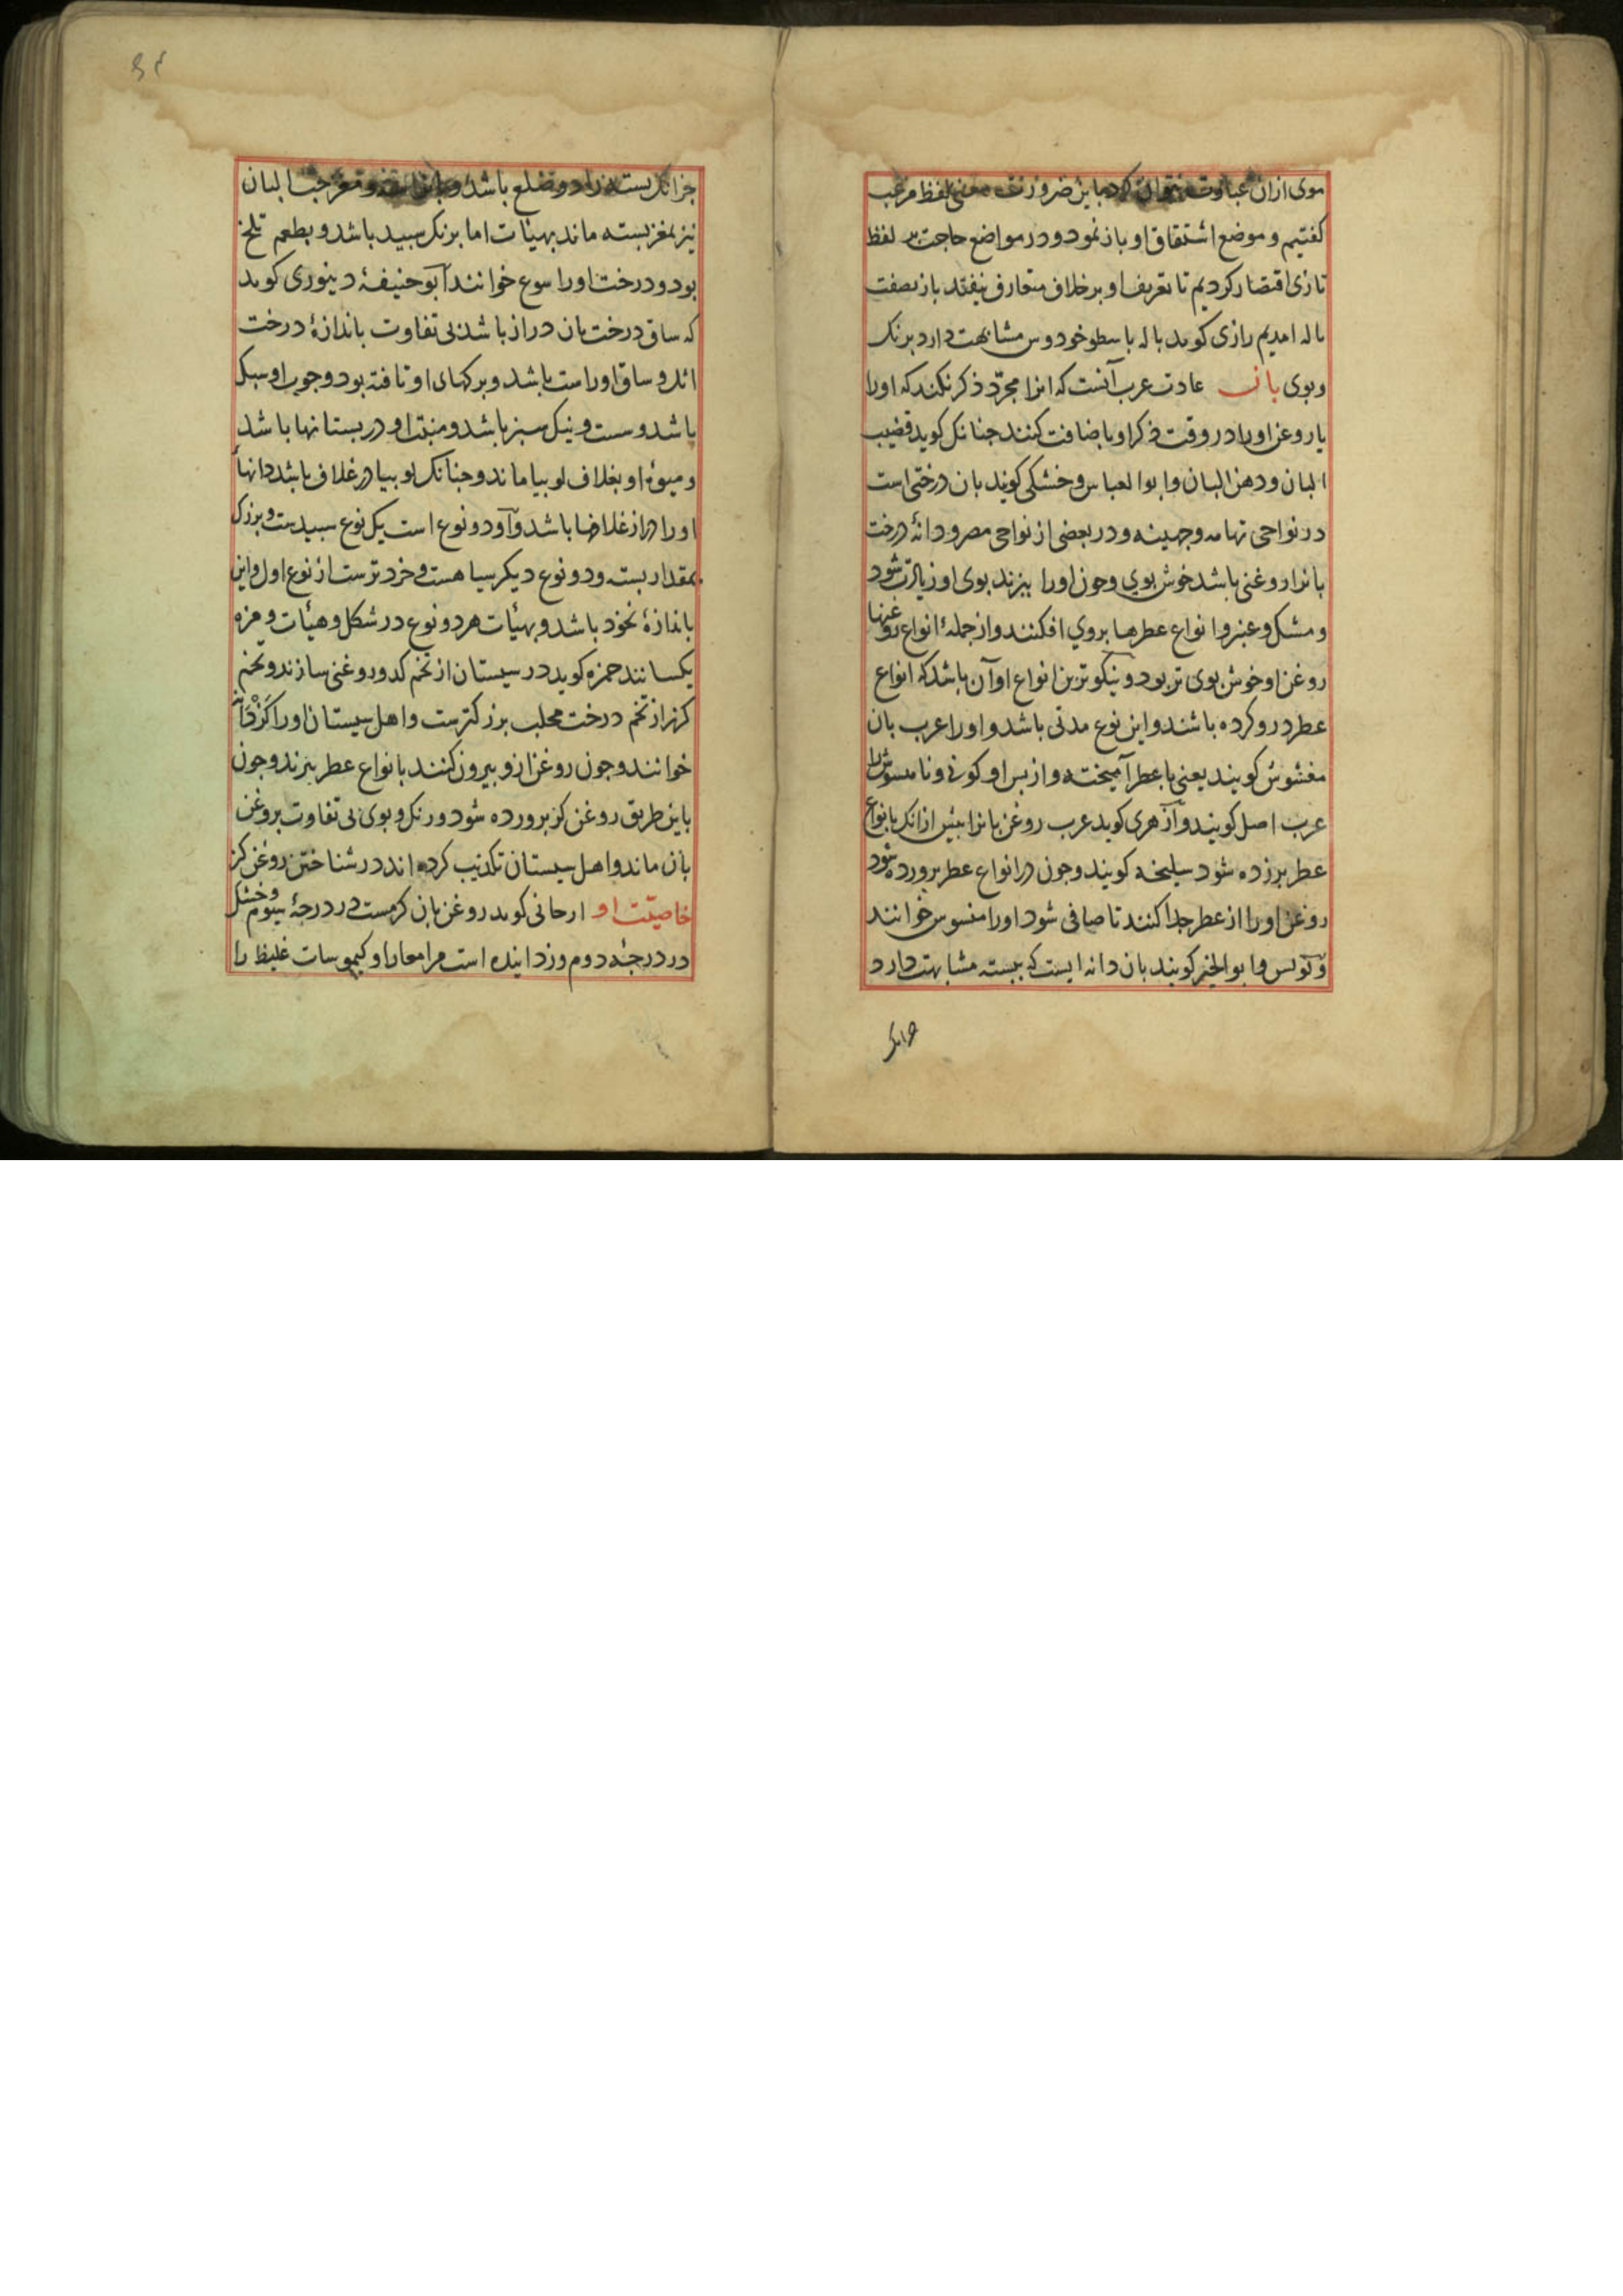 موی ازان عبارت نتوان کرد باین ضرورت معنی لفظ مرغب
کفتیم و موضع اشتقاق او باز نمود و در مواضع حاجت بر لفظ
تازی اقتصار کردیم تا تعریف او بر خلاف متعارف نیفتد باز بصفت
باله امدیم رازی کوید باله باسطوخودوس مشابهت دارد برنک
وبوی بان عادت عرب آنست که انرا مجرّد ذکر نکنند که اورا
یا روغن اورا در وقت ذکر او باضافت کنند جنانک کوید قضیب
البان و دهن البان و ابوالعباس و خشکی کویند بان درختی است
در نواحی تهامه و جهینه و در بعضی از نواحی مصر و دانهٔ درخت
بانرا روغنی باشد خوش بوی و جون اورا ببزند بوی او زیادت شود
و مشک و عنبر و انواع عطرها بروی افکنند و از جملهٔ انواع روغنها
روغن او خوش بوی تر بود و نیکوترین انواع او آن باشد که انواع
عطر درو کرده باشند و این نوع مدتی باشد و اورا عرب بان
مغشوش کویند یعنی با عطر آمیخته و از بس او کوفی و نامسوش را
عرب اصل کویند و آزهری کوید عرب روغن بانرا بیش ازانک بانواع
عطر برزده شود سلیخه کویند و جون در انواع عطر برورده شود
روغن اورا از عطر جدا کنند تا صافی شود اورا منسوس خوانند
و بولس و ابوالخیر کویند بان دانه ایست که ببسته مشابهت دارد
جزانک
جزانک بسته را دو ضلع باشد و و مغز حب البان
نیز بمغز بسته ماند بهیئات اما برنک سبید باشد و بطعم تلخ
بود و درخت اورا سوع خوانند آبو حنیفهٔ دینوری کوید
که ساق درخت بان دراز باشد بی تفاوت باندازهٔ درخت
اثل و ساق او راست باشد و برکهای او تافته بود و جوب او سبک
باشد و سست و نیک سبز باشد و منبت او در بستانها باشد
و میوهٔ او بغلاف لوبیا ماند و جنانک لوبیا در غلاف باشد دانهاء
اورا در از غلافها باشد و آو دو نوع است یک نوع سبیدست و بزرک
بمقدار بسته و دو نوع دیکر سیاهست و خردترست از نوع اول و این
باندازهٔ نخود باشد و بهیئات هر دو نوع در شکل و هیئات و مزه
یکسانند حمزه کوید در سیستان از تخم کدو روغنی سازند و تخم
کز از تخم درخت محلب بزرکترست و اهل سیستان اورا کَزْدَانْ
خوانند و جون روغن ازو بیرون کنند بانواع عطر ببزند و جون
باین طریق روغن کز برورده شود در رنک و بوی بی تفاوت بروغن
بان ماند و اهل سیستان تکذیب کرده اند در شناختن روغن کز
خاصیّت او ارجانی کوید روغن بان کرمست در درجهٔ سیوم و خشک
در درجهٔ دوم و زداینده است مر امعارا و کیموسات غلیظ را